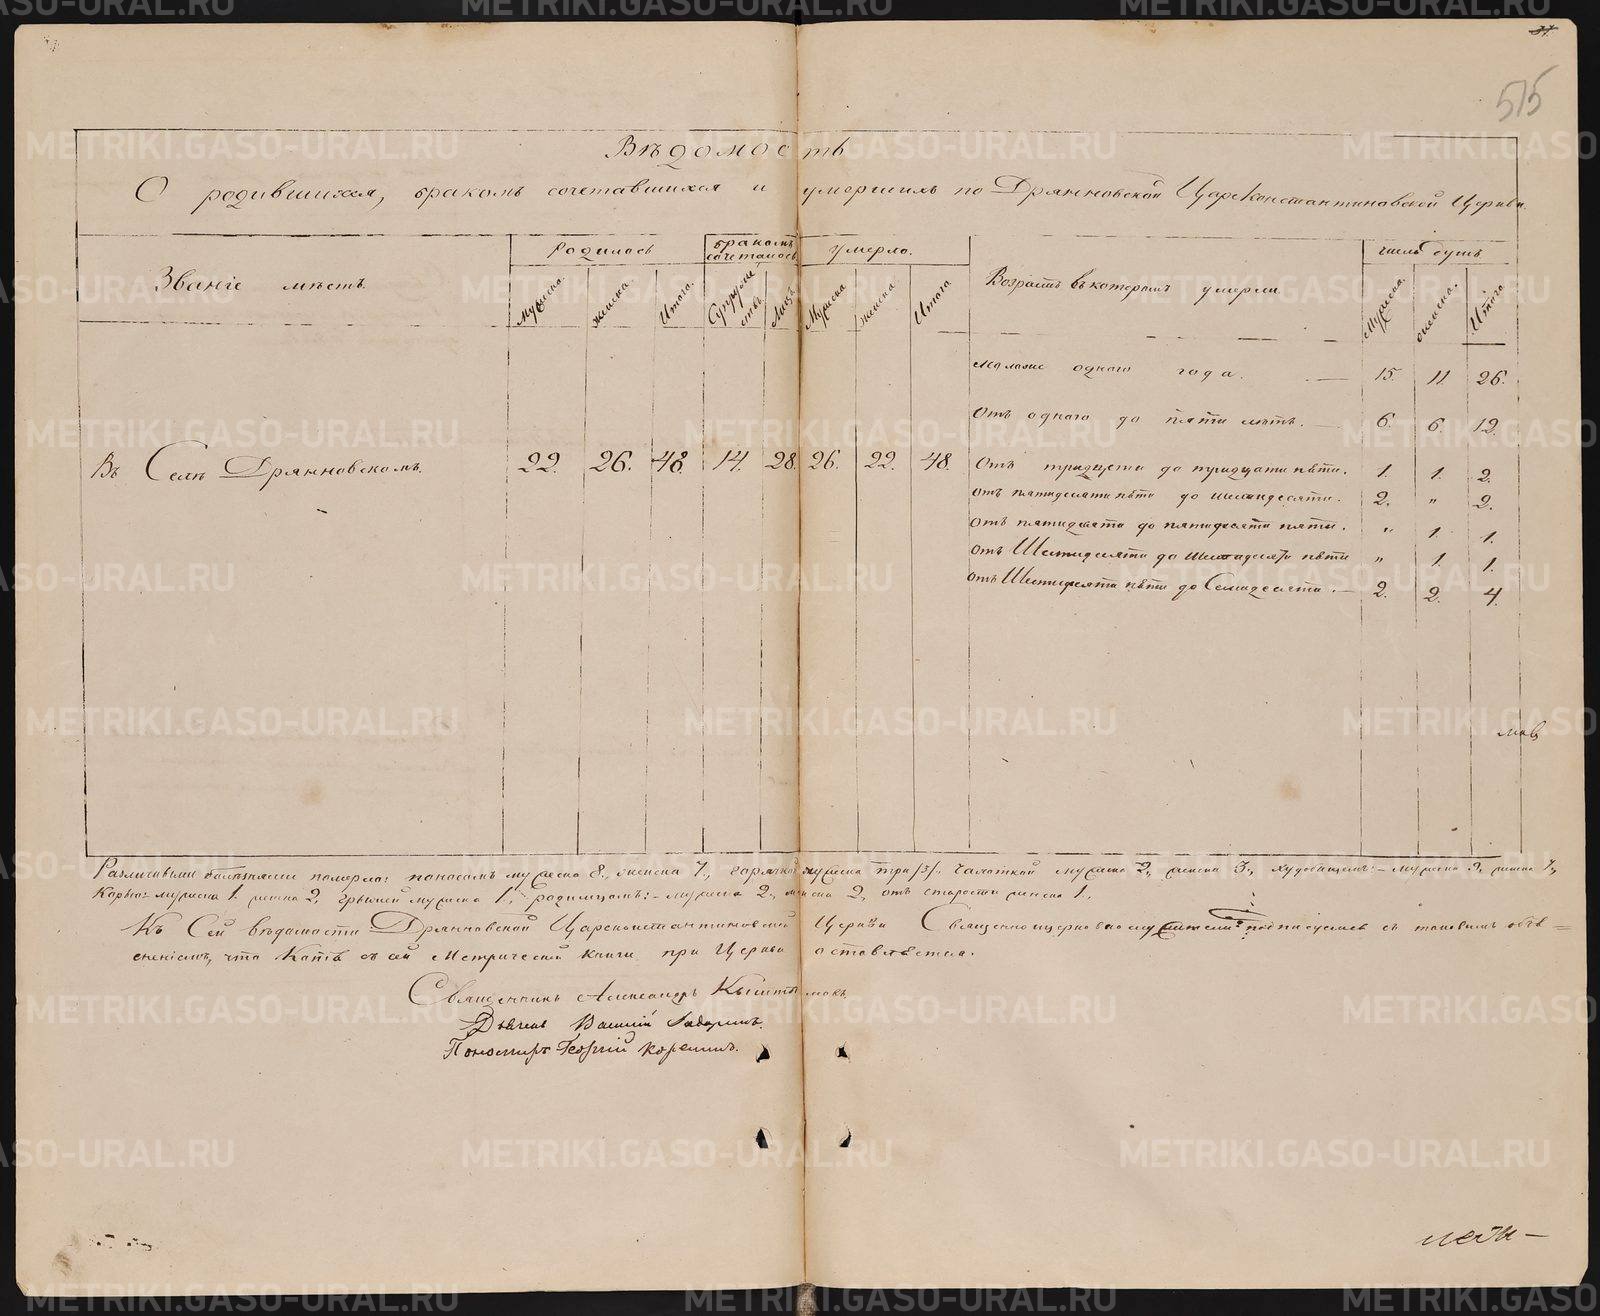 37.
515
Вѣдомость
О родившихся, бракомъ сочетавшихся и умершихъ по Дрянновской Цареконстантиновской Церкви.
Званіе мѣстъ.
Родилось
бракомъ сочеталось
Умерло.
Возрастъ въ которомъ умерли.
число душъ
мужеска.
женска.
Итого.
Супружествъ
Лицъ
Мужеска
женска.
Итого
Мужеска.
женска.
Итого
Въ Селѣ Дрянновскомъ. 22. 26. 48. 14. 28. 26. 22. 48.
моложе одного года. — 15. 11. 26.
Отъ одного до пяти лѣтъ. — 6. 6. 12.
Отъ тридцати до тридцати пѣти. 1. 1. 2.
отъ пятидесяти пѣти до шестидесяти. 2. " 2.
отъ пятидесяти до пятидесяти пяти. " 1. 1.
отъ Шестидесяти до шестидесяти пѣти " 1. 1.
отъ Шестидесяти пѣти до Семидесяти. — 2. 2. 4.
Различными болѣзнями померло: поносомъ мужеска 8, женска 7, горячкой мужеска три /3/. Чахоткой мужеска 2, женска 3,
Корью: мужеска 1. женска 2, грыжей мужеска 1, родимцомъ: – мужеска 2, женска 2, отъ старости женска 1,
Къ Сей вѣдомости Дрянновской Цареконстантиновской Церкви Священноцерковнослужители подписуемся съ таковымъ объ=
ясненіемъ, что Копія съ сей Метрической книги при Церкви оставляется.
Священникъ Александръ Кыштымовъ,
Дьячекъ Василій
Пономарь Георгій Корелинъ.
METRIKI.GASO-URAL.RU